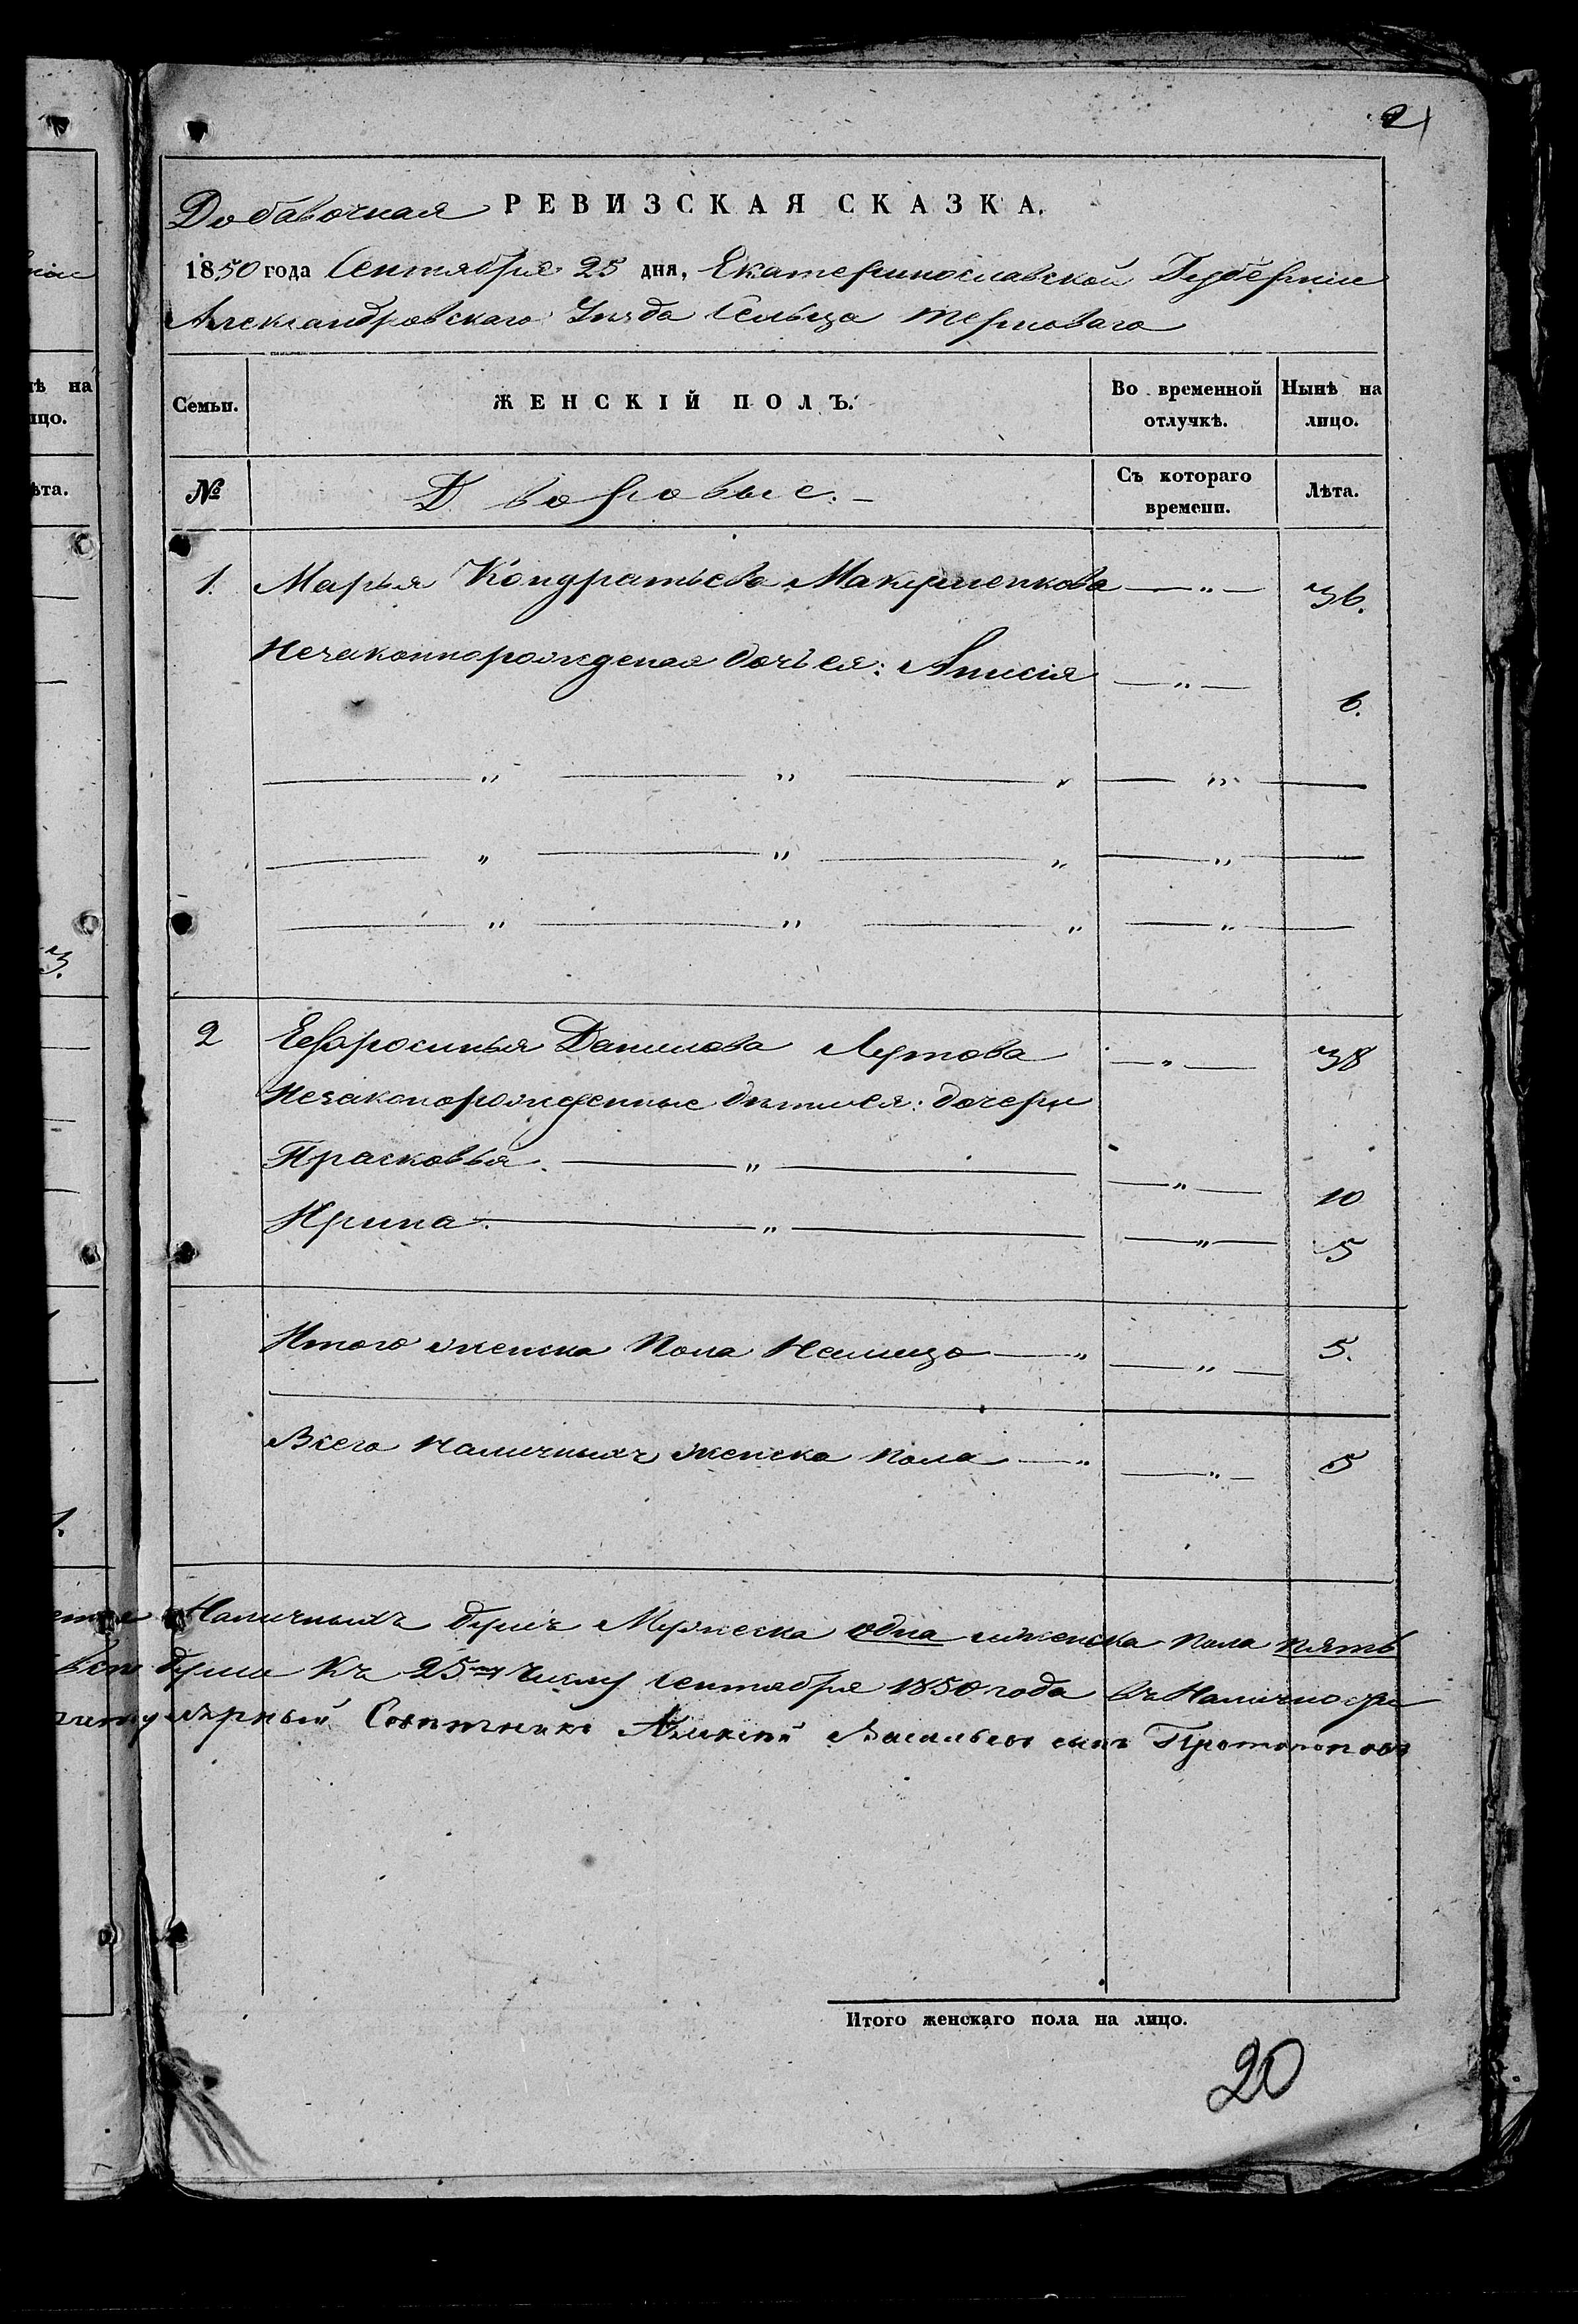 21
Добавочная РЕВИЗСКАЯ СКАЗКА.
1850 года Сентября 25 дня, Екатеринославской Губерніи
Александровскаго Уѣзда Сельца Терноваго
Семьи. ЖЕНСКІЙ ПОЛЪ. Во временной отлучкѣ. Нынѣ на лицо.
№ Дворовые. Съ котораго времени. Лѣта.
1. Марья Кондратьева Макушенкова — „ — 36.
Незаконнорожденая дочь ея: Анисія — „ — 6.
2 Евфросинья Данилова Лутова — „ — 38
Незаконорожденные дѣти ея: дочери
Прасковья. — „ — — „ — 10
Ирина. — „ — — „ — 5
Итого женска пола налицо — „ — „ — 5.
Всего наличныхъ женска пола — „ — „ — 5
Наличныхъ душъ Мужеска одна и женска пола пять
души Къ 25му Числу Сентября 1850 года въ Наличности
Совѣтникъ Алексѣй Васильевъ сынъ Протопоповъ
Итого женскаго пола на лицо.
20
ѣ на
ицо.
ѣта.
3.
1.